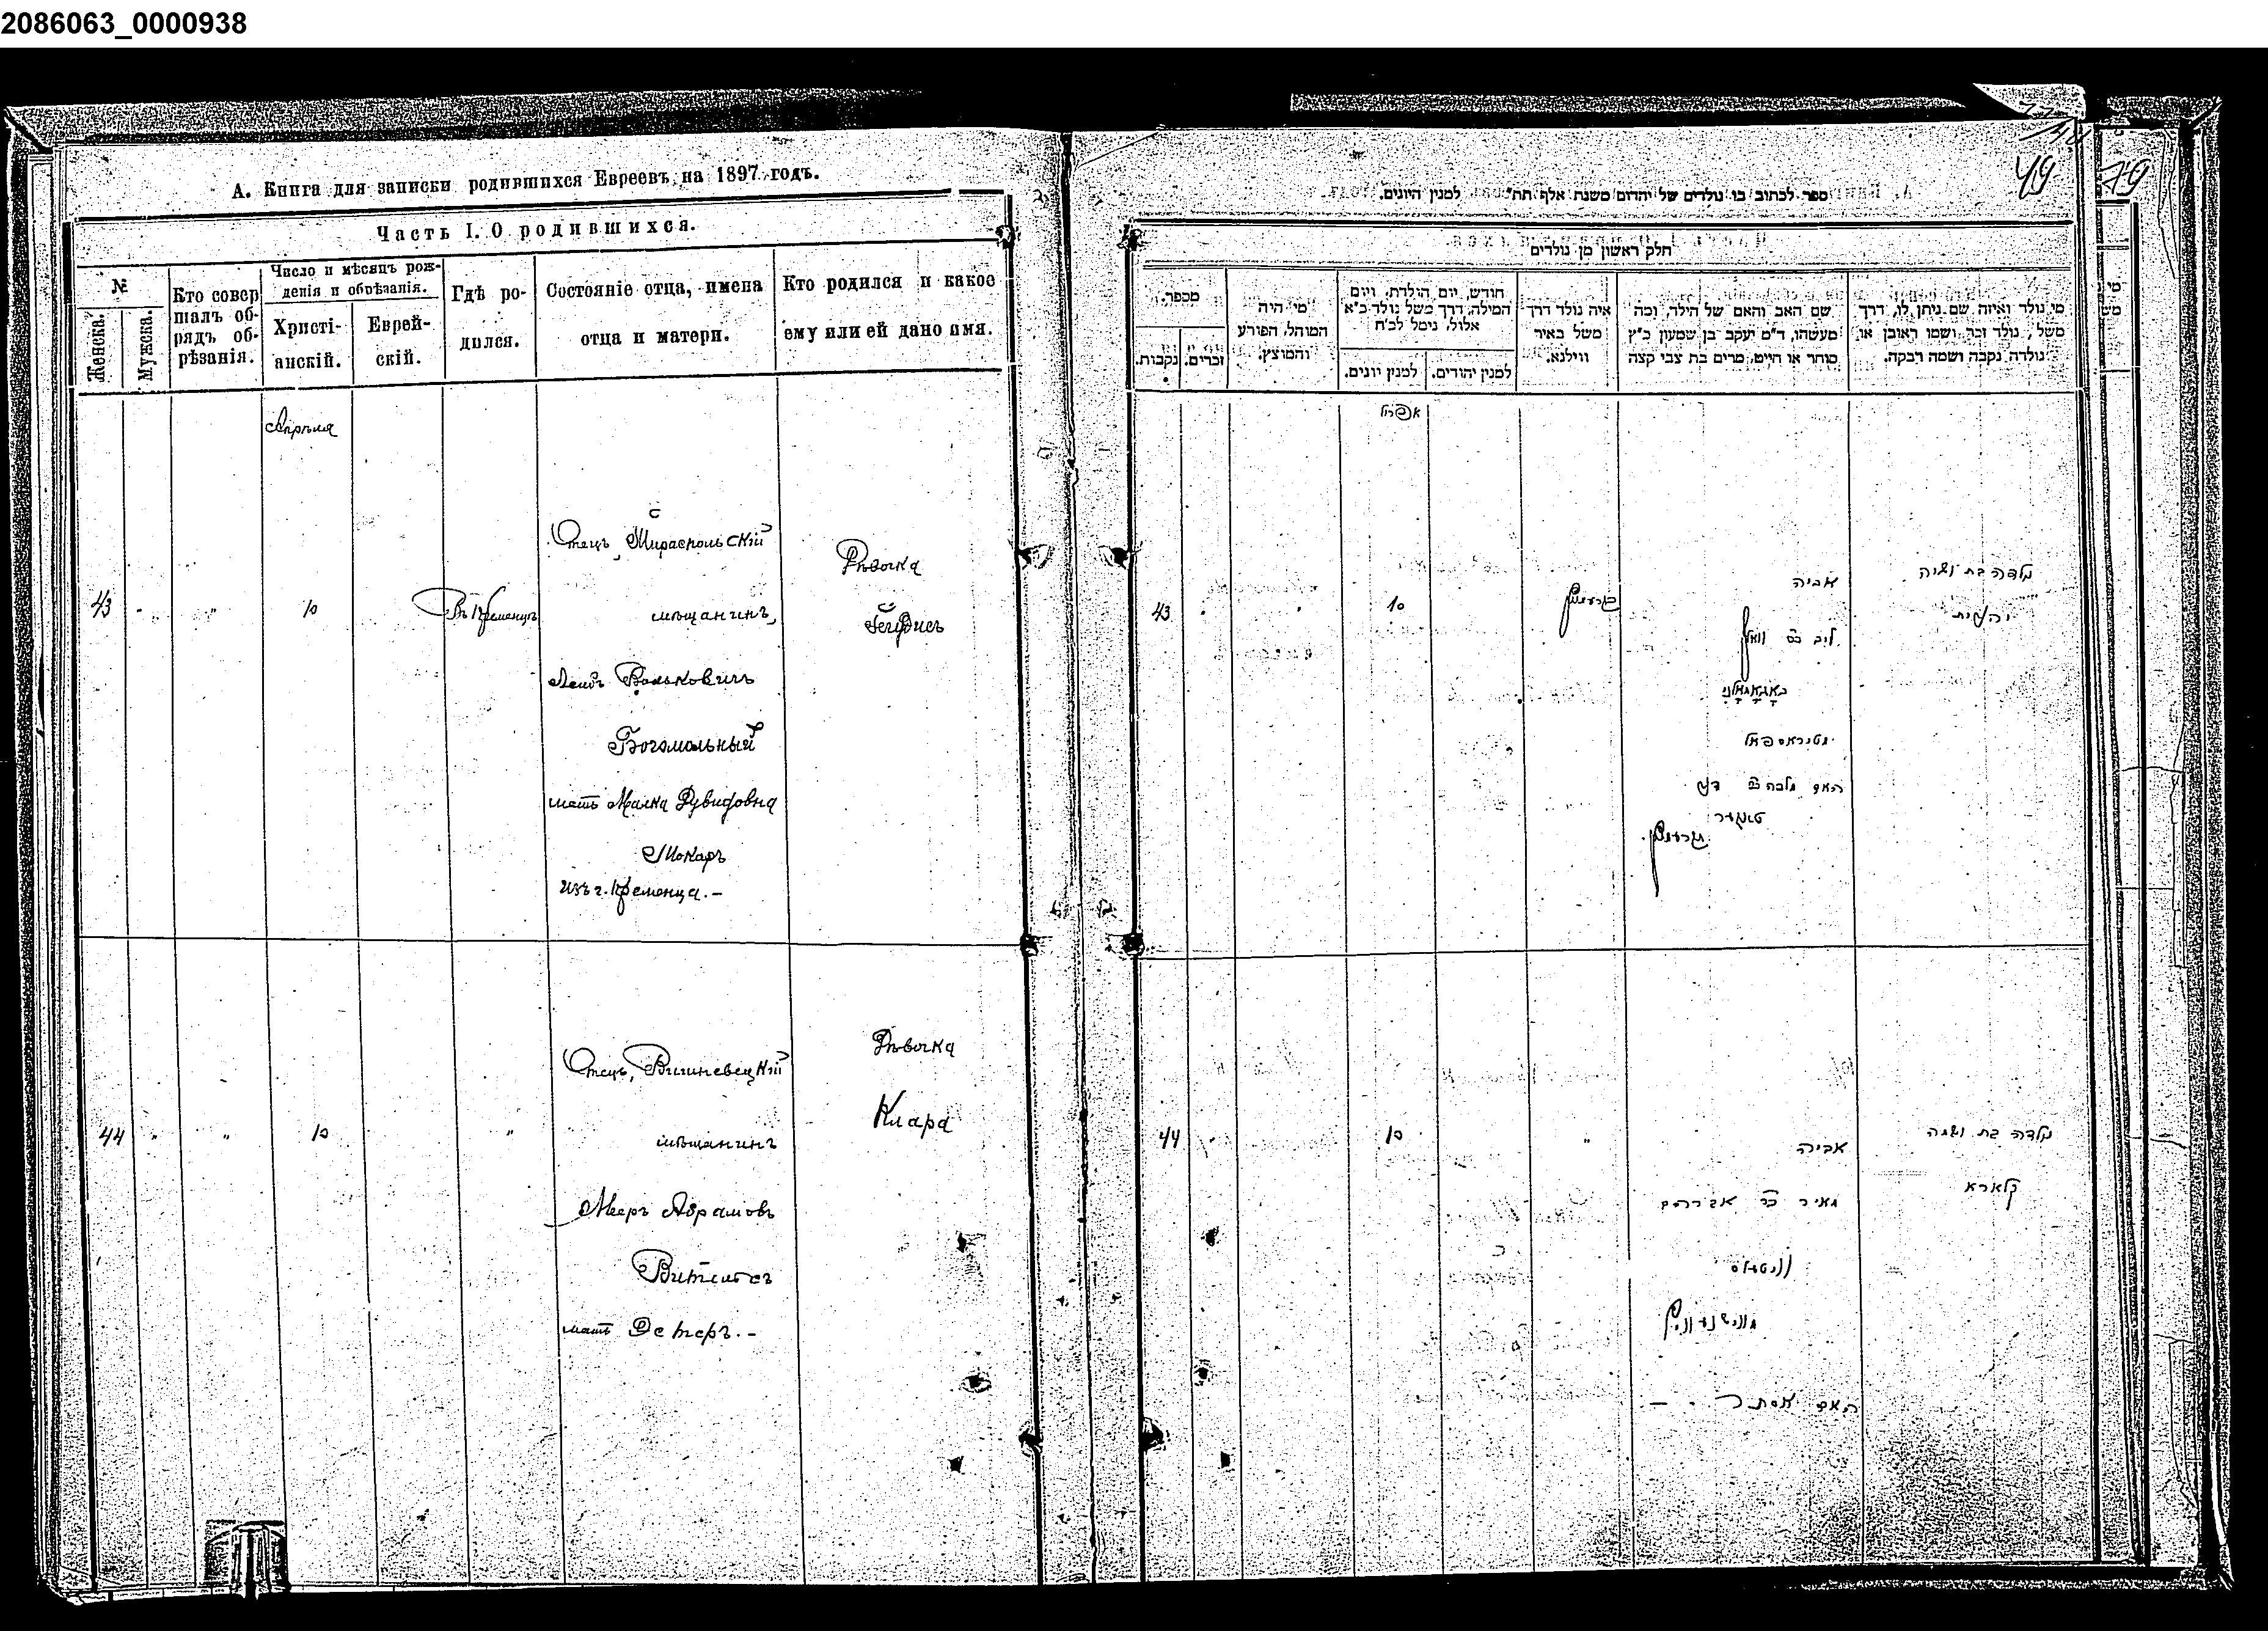 2086063_0000938
А. Книга для записки родившихся Евреевъ на 1897 годъ.
Часть I. О родившихся.
№
Женска.
Мужска.
Кто совер
шалъ об-
рядъ об-
рѣзанія.
Число и мѣсяцъ рож-
денія и обрѣзанія.
Христі-
анскій.
Еврей-
скій.
Гдѣ ро-
дился.
Состояніе отца, имена
отца и матери.
Кто родился и какое
ему или ей дано имя.
Апрѣля
43 " " 10
Въ Кременцѣ
Отецъ, Тираспольскій
мѣщанинъ,
Лейбъ Вольковичъ
Богомольный
мать Малка Дувидовна
Токаръ
изъ г. Кременца.-
Дѣвочка
Іегудисъ
44 " " 10 "
Отецъ, Вишневецкій
мѣщанинъ
Мееръ Абрамовъ
Вительсъ
мать Эстеръ.-
Дѣвочка
Клара
49
79
ספר לכתוב בו נולדים של יהדום משנת אלף תת" למנין היונים.
חלק ראשון מן נולדים
מספר.
נקבות.
זכרים.
מי היה
המוהל, הפורע
והמוצץ.
חודש, יום הולדת, ויום
המילה, דרך משל נולד כ"א
אלול, נימל לכ"ח
למנין יונים.
למנין יהודים.
איה נולד דרך
משל באיר
ווילנא.
שם האב והאם של הילד, ומה
מעשהו, ד"מ יעקב בן שמעון כ"ץ
סוחר או חייט, מרים בת צבי קצה
מי נולד ואיזה שם ניתן לו, דרך
משל, נולד זכר, ושמו ראובן או
נולדה נקבה ושמה רבקה.
אפריל
43
10
קרעמניץ
אביה
ליב בר וואלף
באגאמאלני
מטיראספאל
האם מלכה בר דוד
טוקער
מקרעמניץ
נולדה בת ושמה
יהודית
44
10
"
אביה
מאיר בר אברהם
וויטעלס
מווישנעוויץ
האם אסתר -
נולדה בת ושמה
קלארא